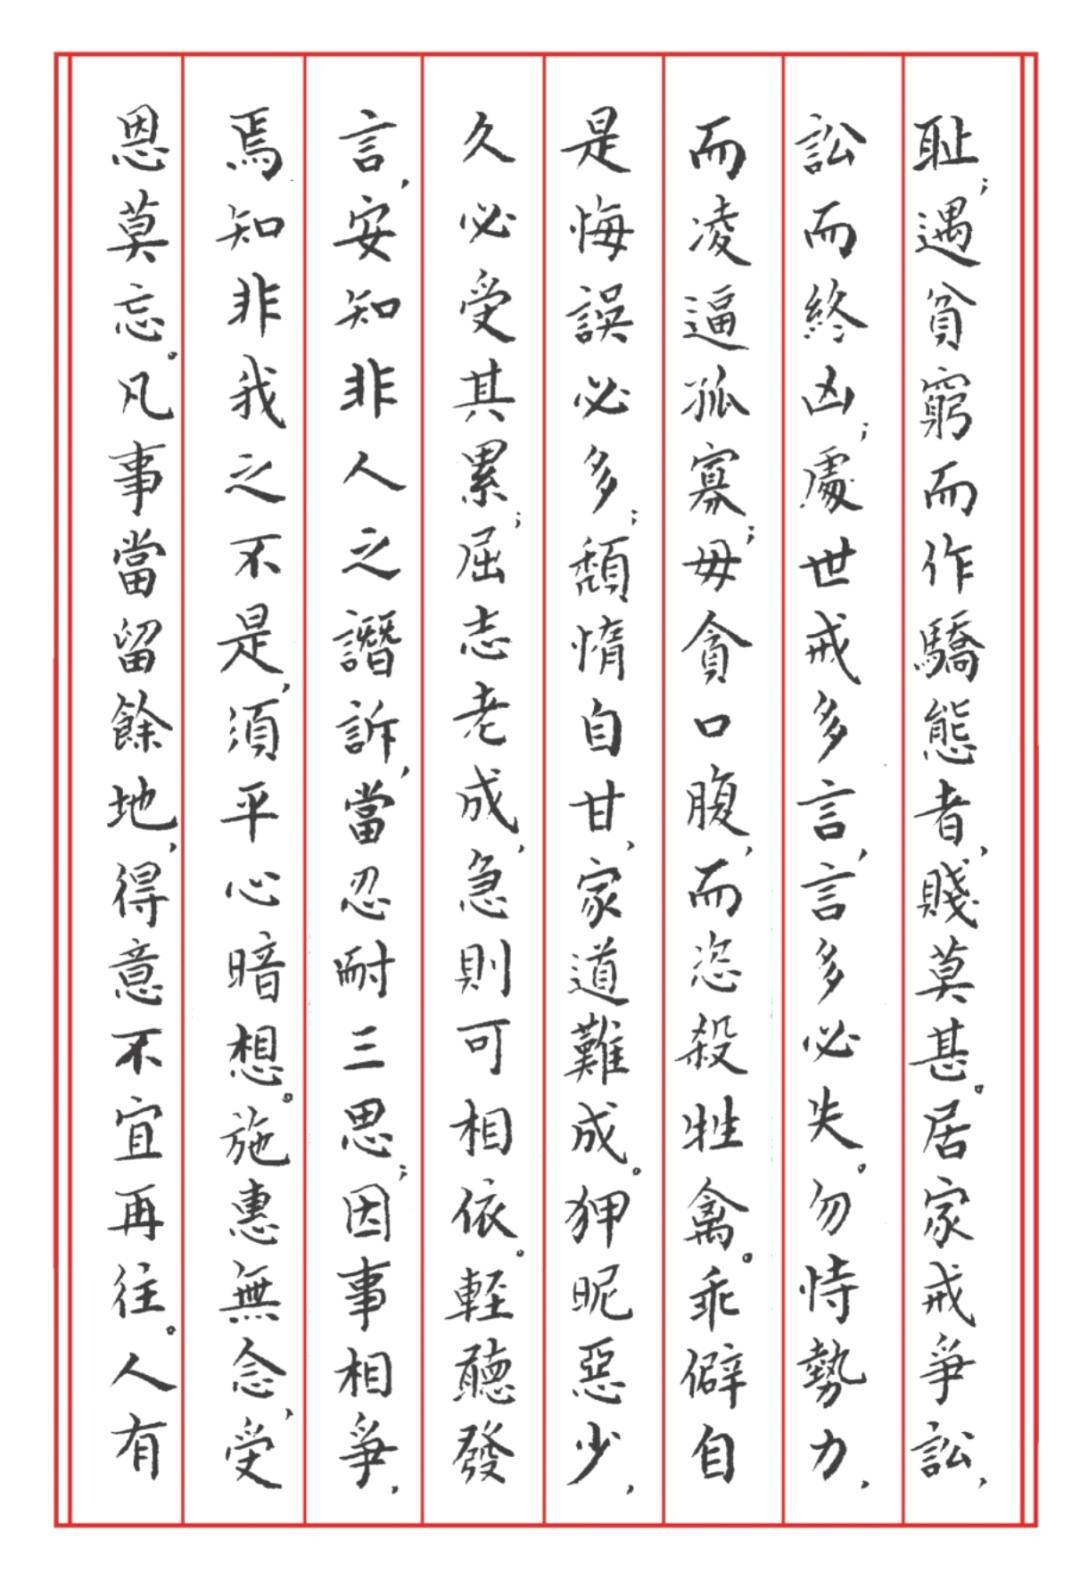 耻；遇貧窮而作驕態者，賤莫甚。居家戒爭訟，
訟而終凶；處世戒多言，言多必失。勿恃勢力，
而凌逼孤寡；毋貪口腹，而恣殺牲禽。乖僻自
是悔誤必多；頹惰自甘，家道難成。狎昵惡少，
久必受其累；屈志老成，急則可相依。輕聽發
言，安知非人之譖訴，當忍耐三思；因事相爭，
焉知非我之不是，須平心暗想。施惠無念，受
恩莫忘。凡事當留餘地，得意不宜再往。人有